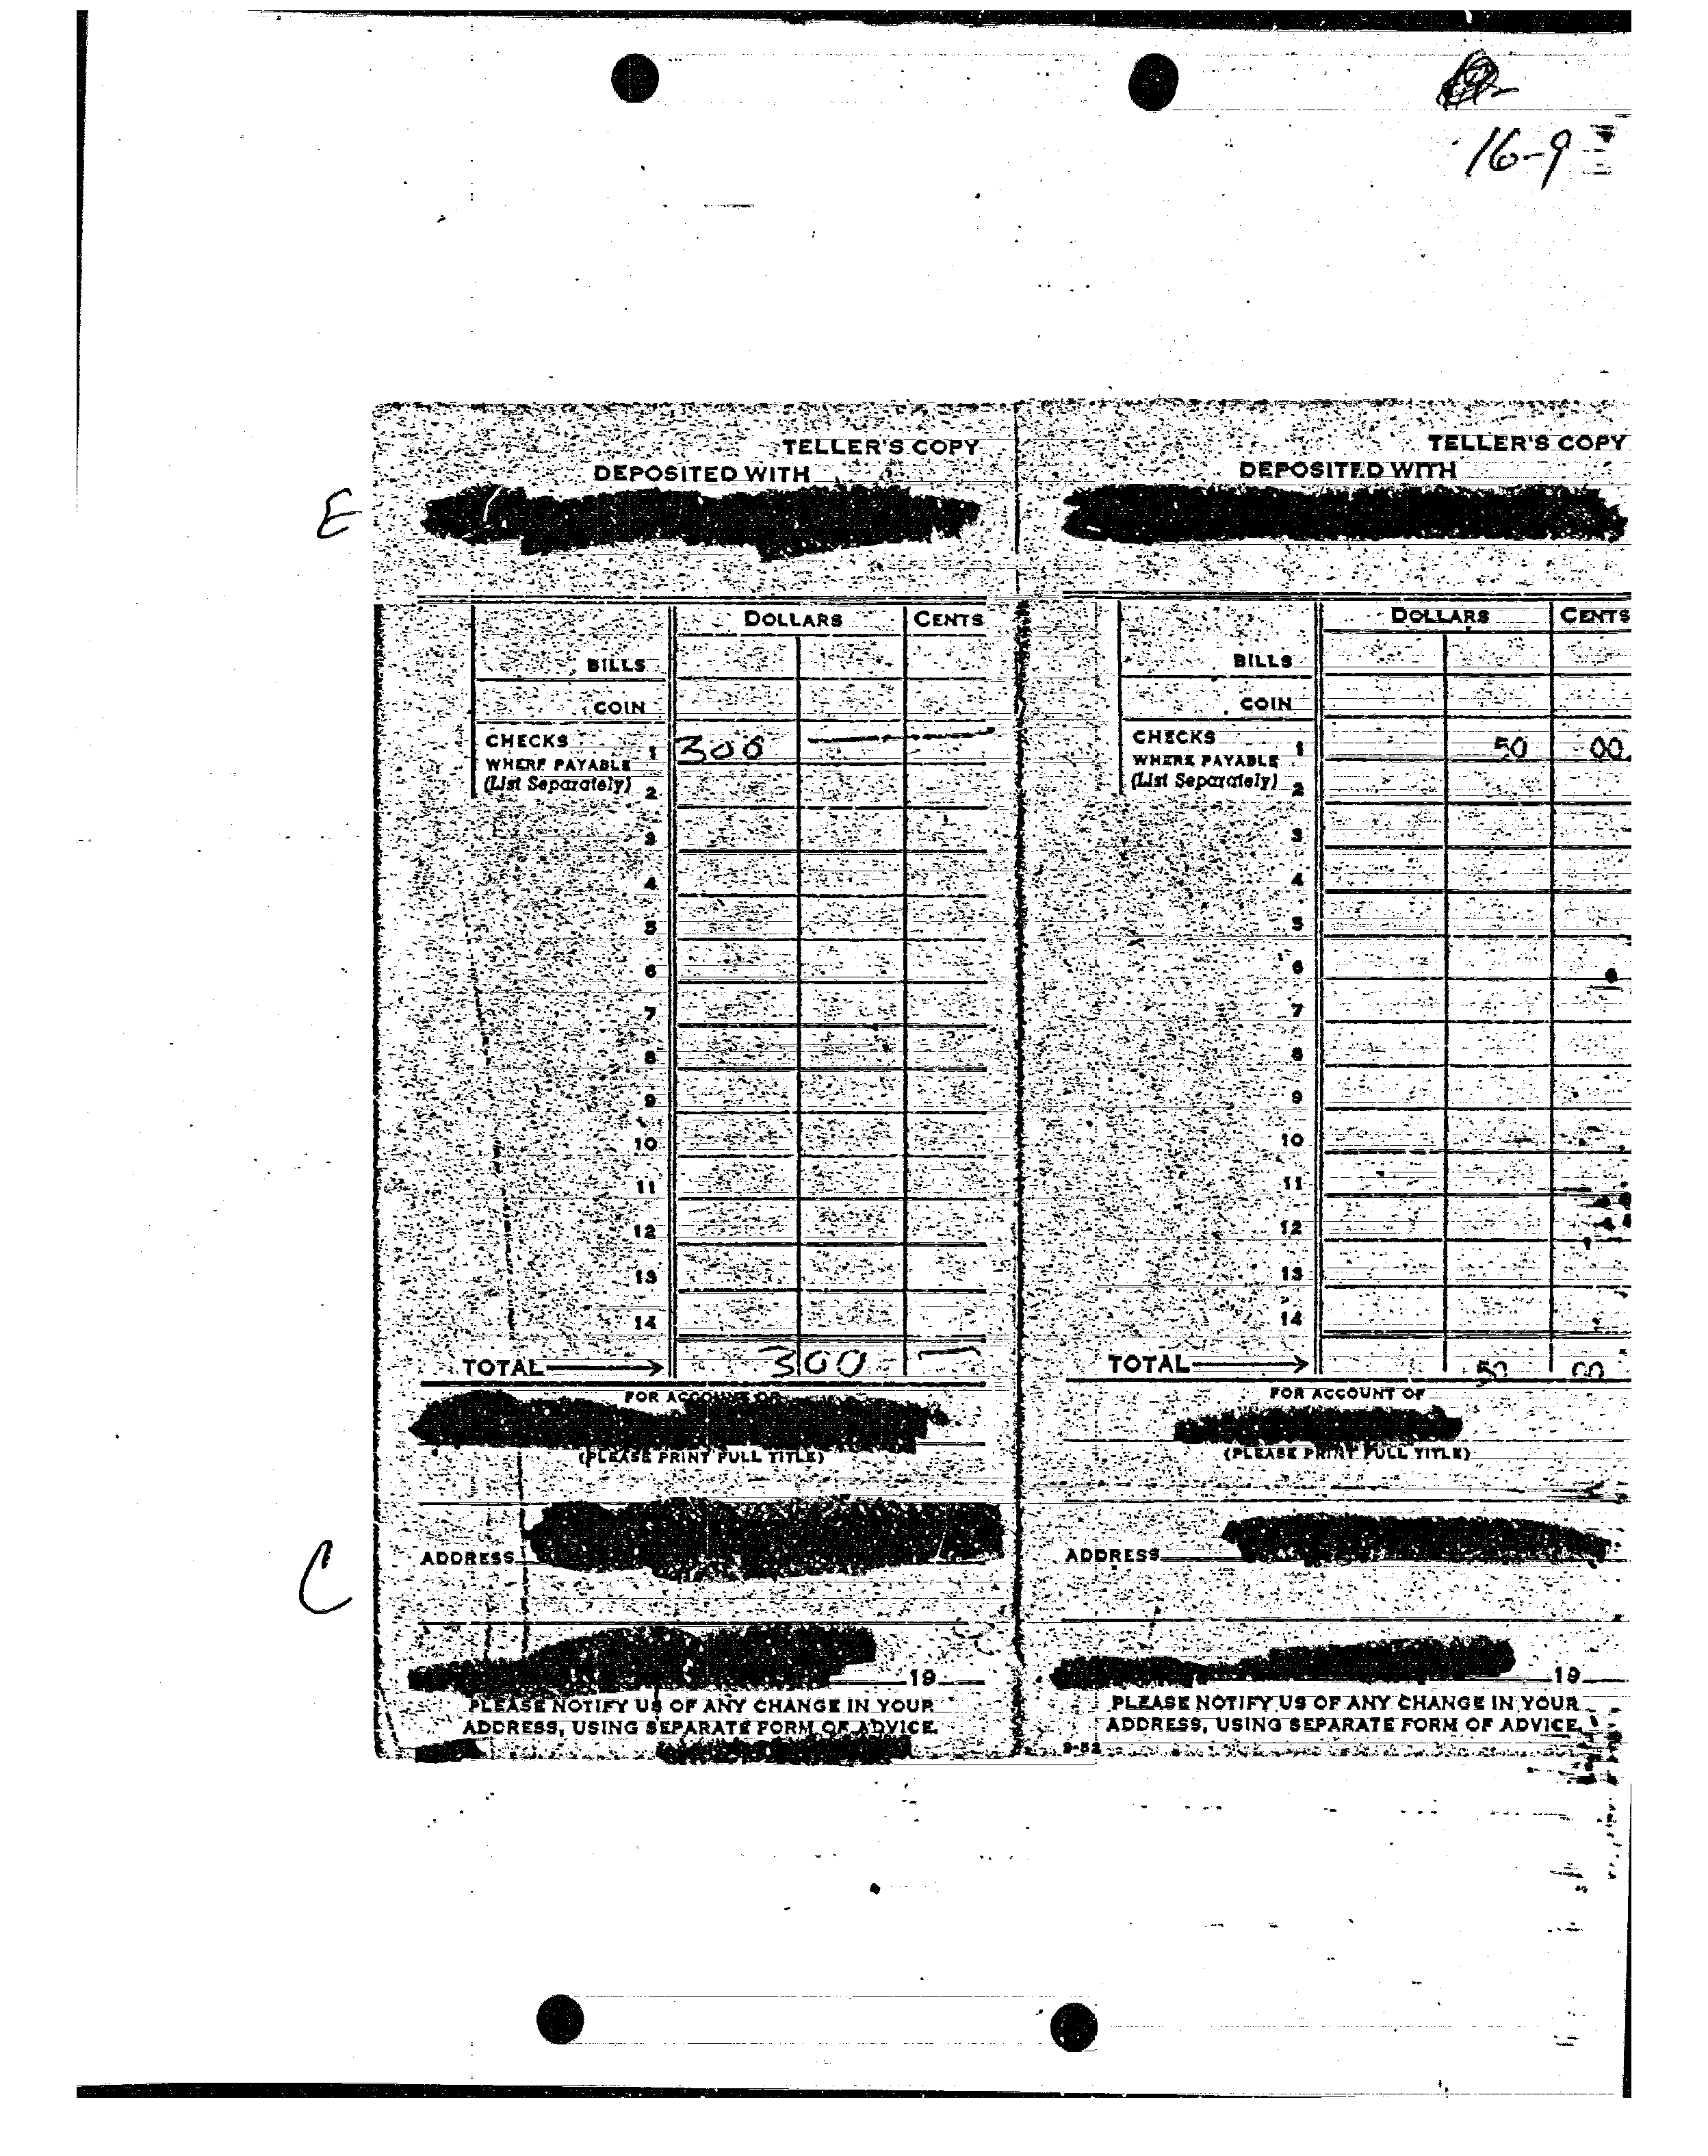 16-9
E
C
TELLER'S COPY
DEPOSITED WITH
DOLLARS CENTS
BILLS
COIN
CHECKS 1 300 —
WHERE PAYABLE
(List Separately) 2
3
4
5
6
7
8
9
10
11
12
13
14
TOTAL 300 —
FOR ACCOUNT OF
(PLEASE PRINT FULL TITLE)
ADDRESS
19
PLEASE NOTIFY US OF ANY CHANGE IN YOUR
ADDRESS, USING SEPARATE FORM OF ADVICE.
TELLER'S COPY
DEPOSITED WITH
DOLLARS CENTS
BILLS
COIN
CHECKS 1 50 00
WHERE PAYABLE
(List Separately) 2
3
4
5
6
7
8
9
10
11
12
13
14
TOTAL 50 00
FOR ACCOUNT OF
(PLEASE PRINT FULL TITLE)
ADDRESS
19
PLEASE NOTIFY US OF ANY CHANGE IN YOUR
ADDRESS, USING SEPARATE FORM OF ADVICE.